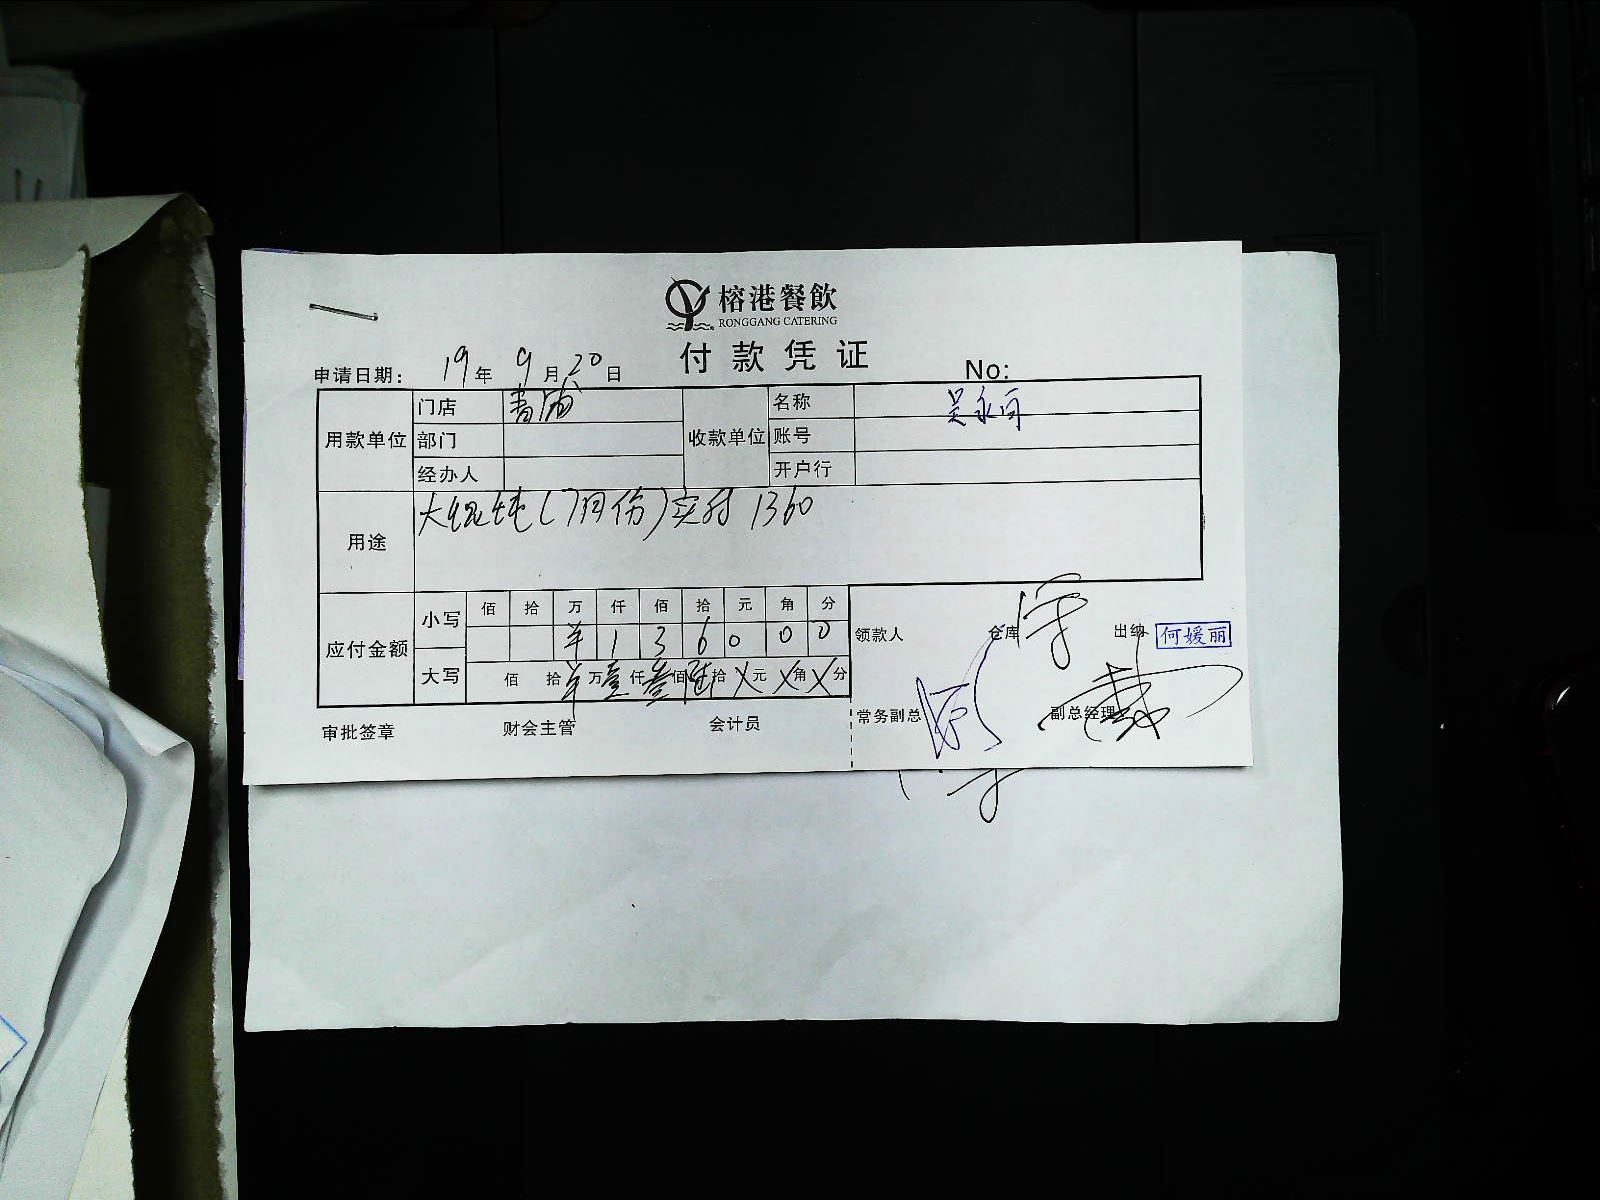 榕港餐飲
RONGGANG CATERING
付款凭证
申请日期： 19年 9月 20日 No:
用款单位 门店 收款单位 名称 吴永
部门 账号
经办人 开户行
用途 大馄饨（7月份）实付 1360
应付金额 小写 佰 拾 万 仟 佰 拾 元 角 分
¥ 1 3 6 0 0 0
大写 佰 拾 ¥ 万 壹 仟 叁 佰 陆 拾 X 元 X 角 X 分
领款人 仓库 出纳 何媛丽
常务副总 副总经理
审批签章 财会主管 会计员